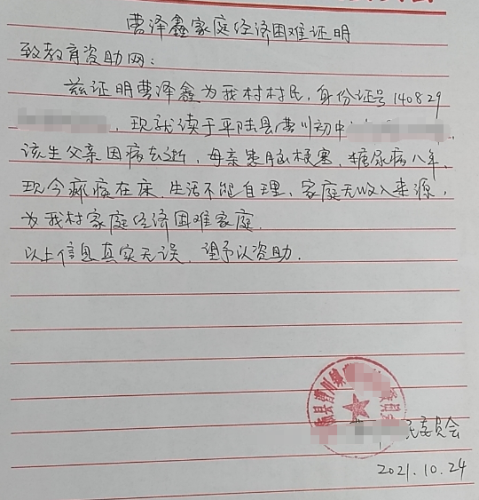 曹泽鑫家庭经济困难证明
致教育资助网：
兹证明曹泽鑫为我村村民，身份证号140829
，现就读于平陆县曹川初中
该生父亲因病去逝，母亲患脑梗塞、糖尿病八年，
现今瘫痪在床，生活不能自理，家庭无收入来源，
为我村家庭经济困难家庭.
以上信息真实无误，望予以资助.
陆县曹川镇
委员会
民委员会
2021.10.24